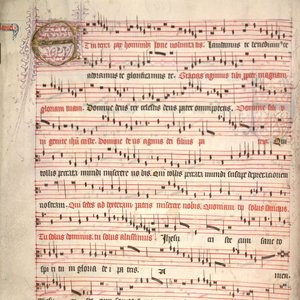 Et in terra pax hominibus bone voluntatis. Laudamus te benedicimus te
adoramus te glorificamus te. Gracias agimus tibi propter magnam
gloriam tuam. Domine deus rex celestis deus pater omnipotens. Domine fili
unigenite ihesu christe. Domine deus agnus dei filius patris Qui
tollis peccata mundi miserere nobis. Qui tollis peccata mundi suscipe deprecationem
nostram. Qui sedes ad dexteram patris miserere nobis. Quoniam tu solus sanctus.
Tu solus dominus. tu solus altissimus. Ihesu cum sancto
spiritu in gloria dei patris. A
men.